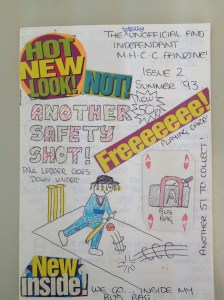 totally
THE UNOFFICIAL AND
INDEPENDANT
M·H·C·C FANZINE!
HOT
NEW
LOOK!
NOT!
ISSUE 2
SUMMER '93
NOW
50p!
ANOTHER
SAFETY
SHOT!
Freeeeeeee!
PLAYING CARD!
PAUL LEDGER GOES
'DOWN UNDER'
A
BUS
BAG
A
ANOTHER 51 TO COLLECT!
New
inside!
WE GO... INSIDE MY
BUS BAG